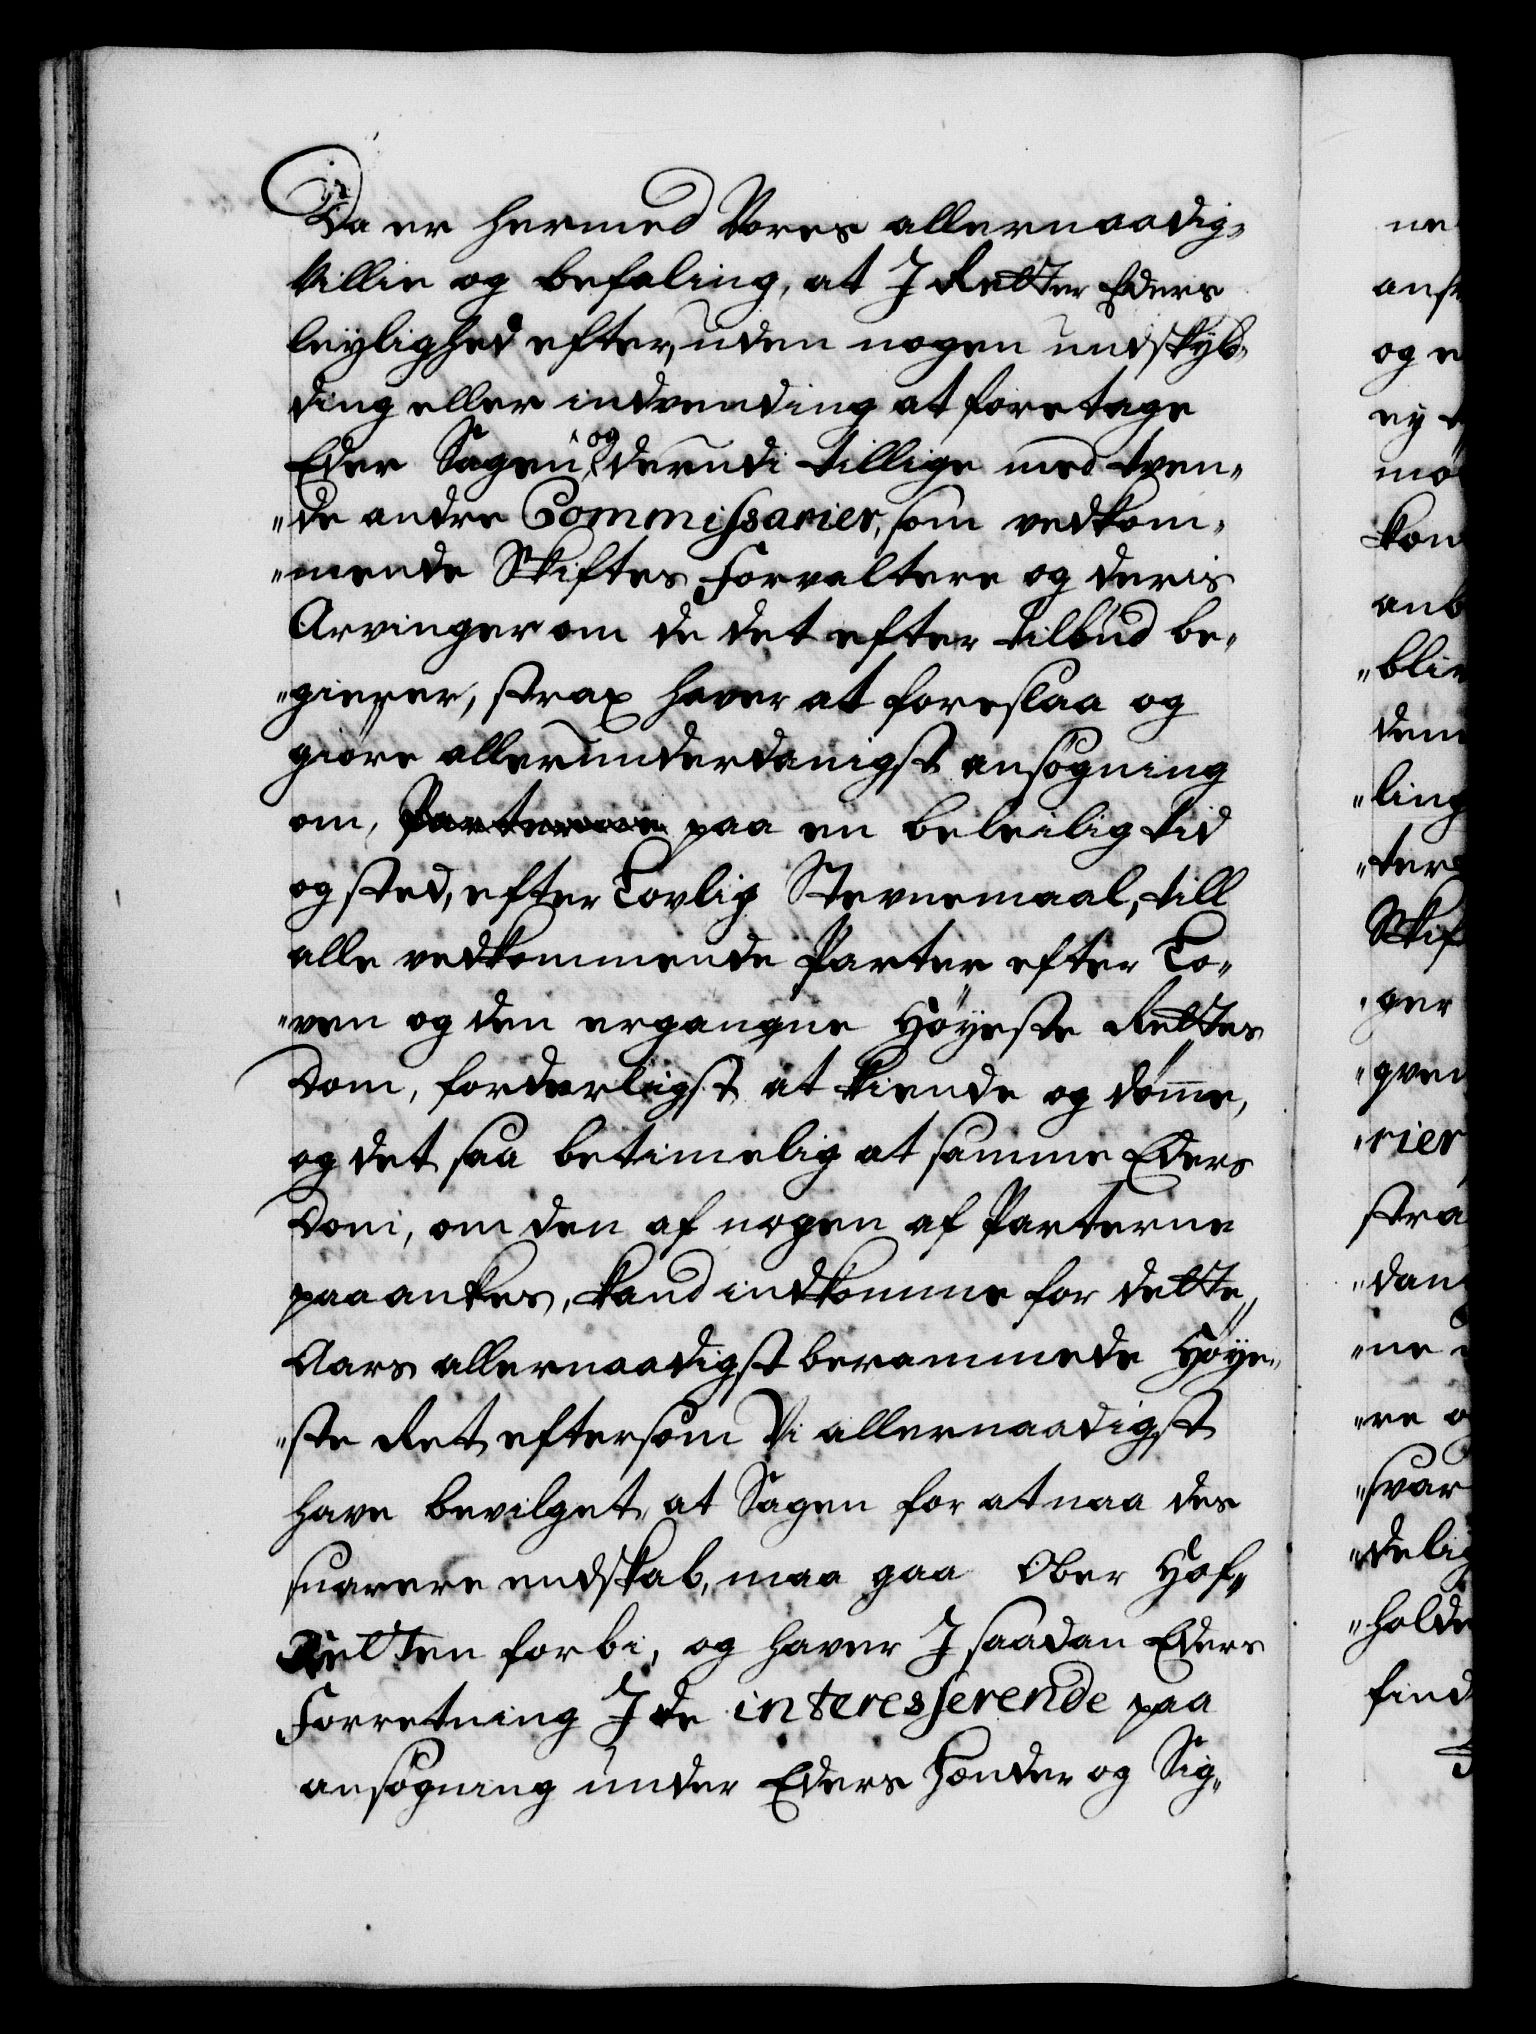 Da er hermed Vores allernaadig-
Villie og befaling, at I Retter Eders
leylighed efter, uden nogen undskyl-
ding eller indvending at foretage
Eder Sagen, og derudi tillige med tven-
"de andre Commissarier, som vedkom-
"mende Skiftes Forvaltere og deris
Arvinger om de det efter tilbud be-
"gierer, strax haver at foreslaa og
giøre allerunderdanigst ansøgning
om, Parterne paa en beleilig tid
og sted, efter Lovlig Stevnemaal, till
alle vedkommende Parter efter Lo-
"ven og den ergangne Høyeste Rettes
Dom, forderligst at kiende og dømme,
og det saa betimelig at samme Eders
Dom, om den af nogen af Parterne
paaankes, kand indkomme for dette
Aars allernaadigst berammede Høye-
"ste Ret, eftersom Vi allernaadigst
have bevilget, at Sagen for at naa des
snarere endskab, maa gaa Ober Hof-
Retten forbi, og haver I saadan Eders
Forretning I de interesserende paa
ansøgning under Eders Hænder og Sig-